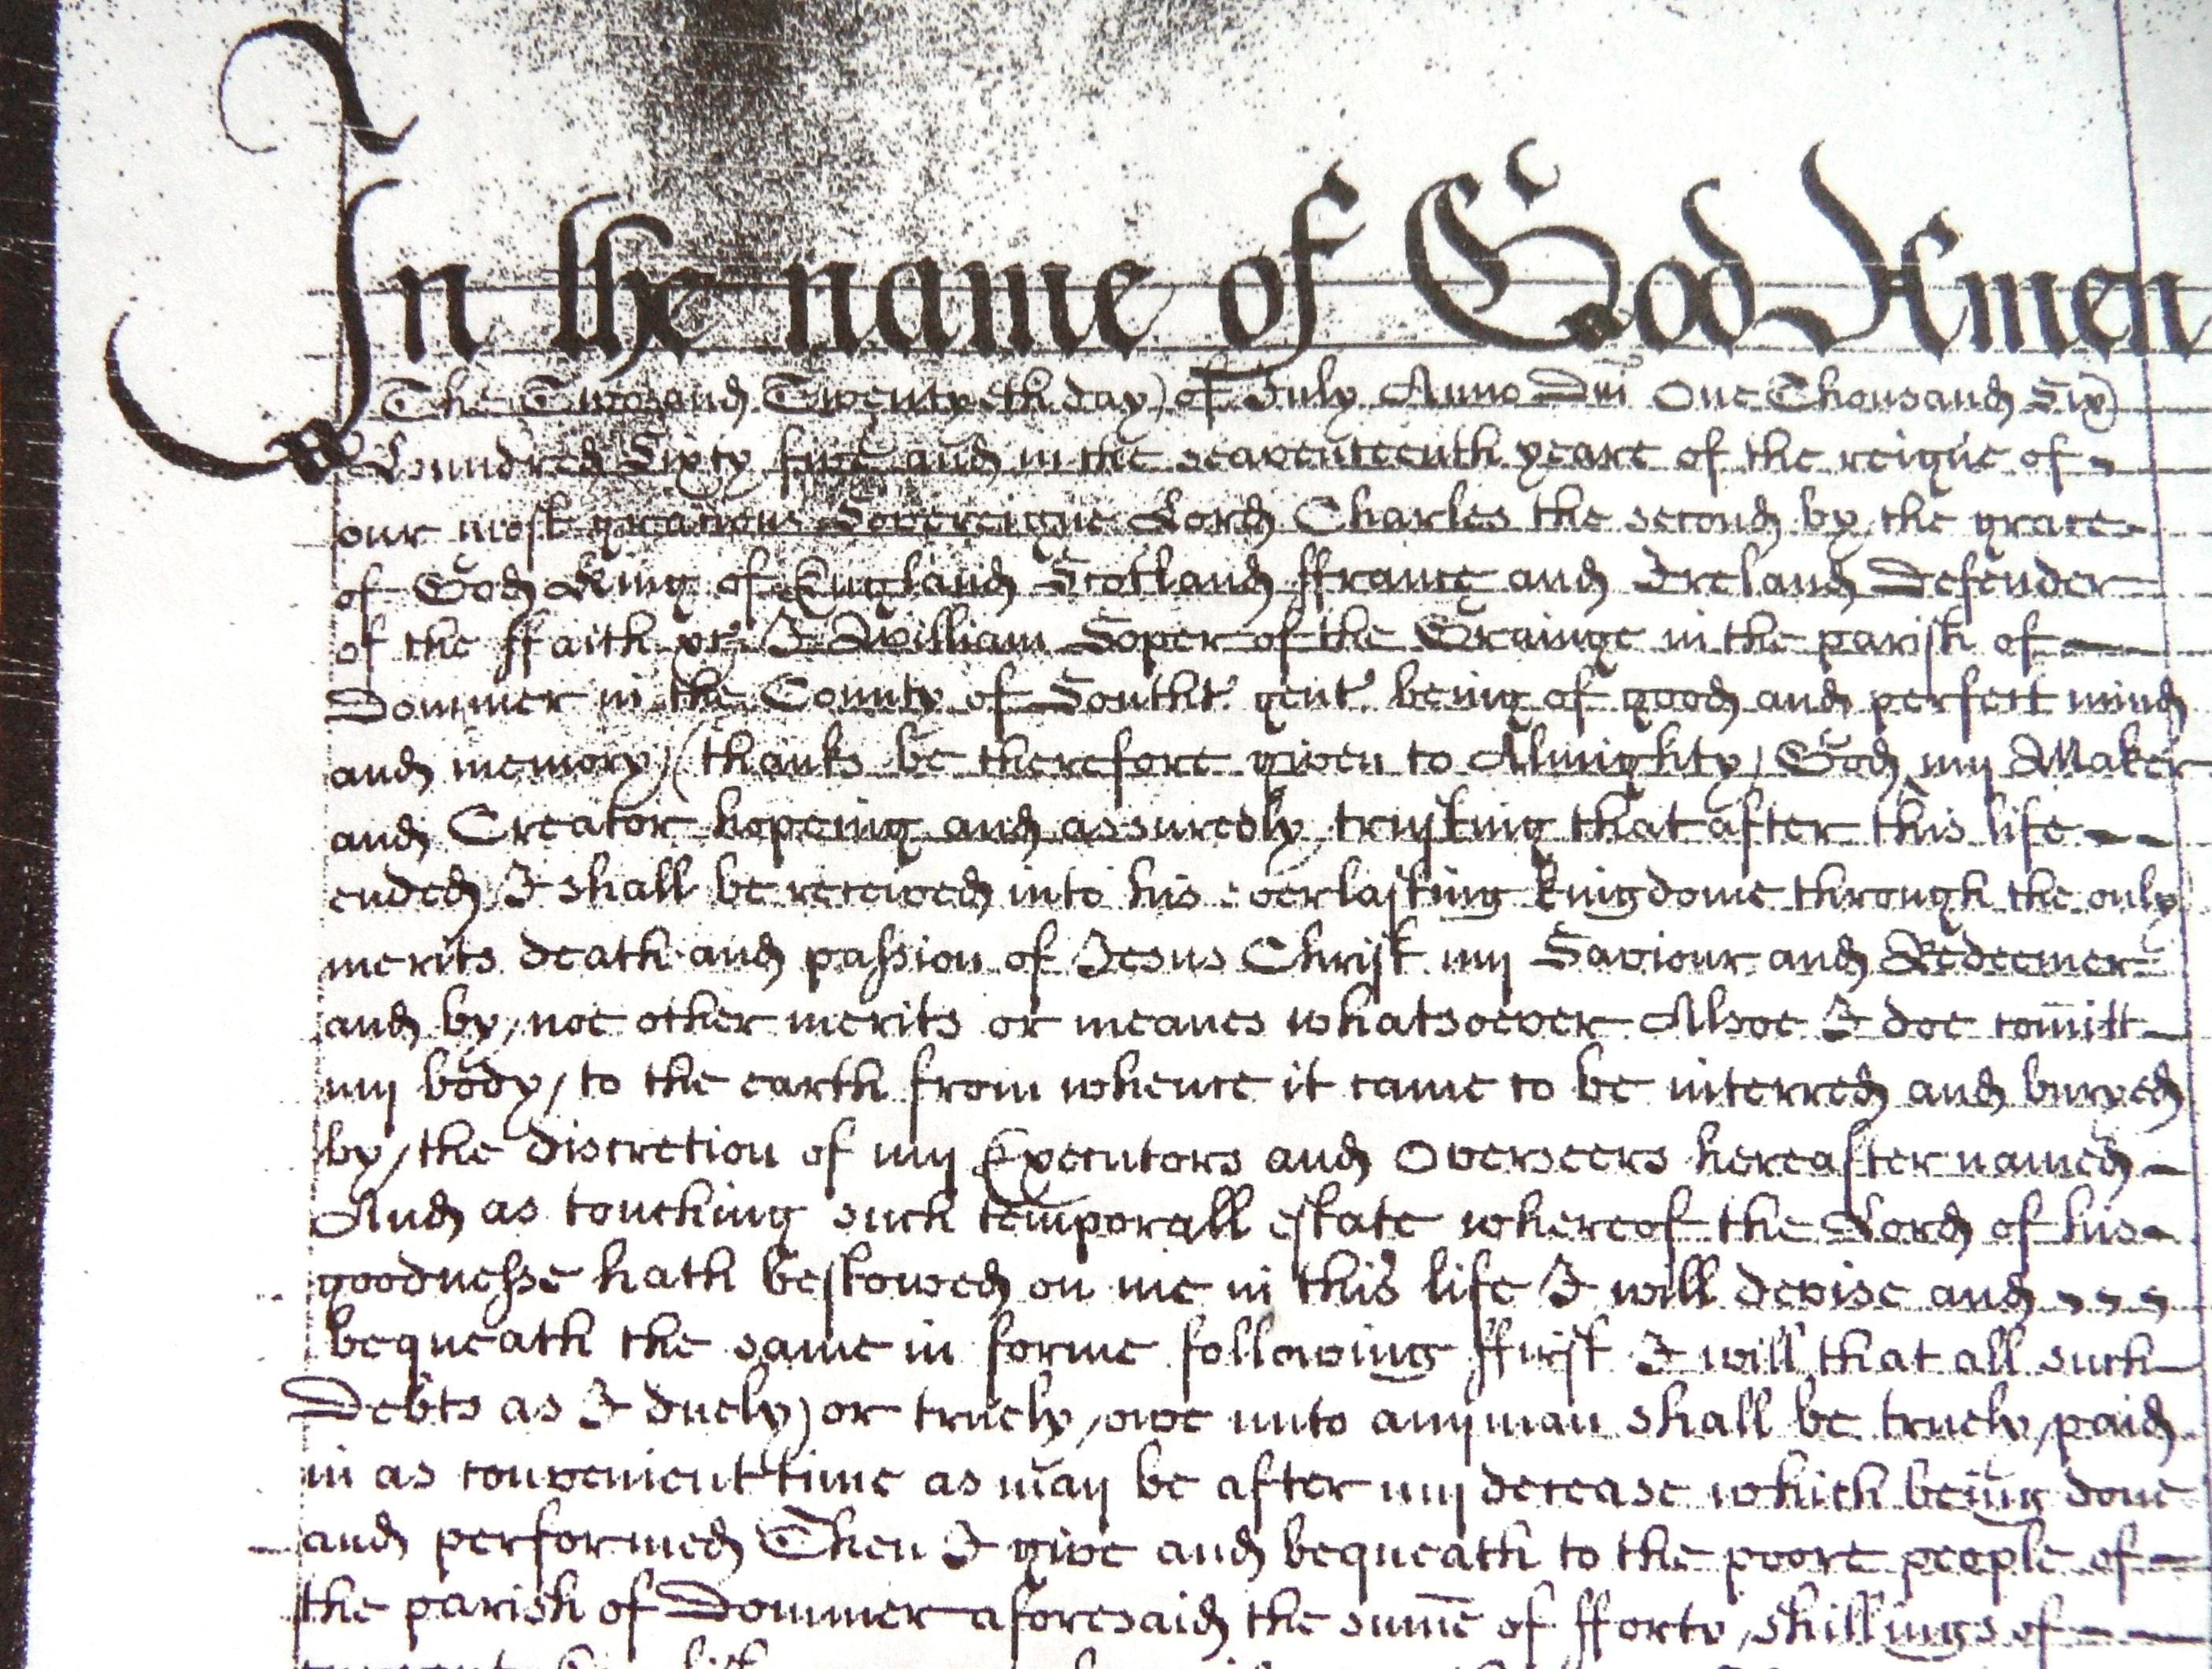 In the name of God Amen
The Two and Twentyeth day of July Anno Dm̄i One Thousand Six
Hundred Sixty five and in the seaventeenth yeare of the reigne of
our most gratious Sovereigne Lord Charles the second by the grace
of God King of England Scotland ffrance and Ireland Defender
of the ffaith &c. I William Soper of the Grainge in the parish of
Dommer in the County of Southt. gent. being of good and perfect mind
and memory (thanks be therefore given to Almighty God my Maker
and Creator hopeing and assuredly trusting that after this life
ended I shall be received into his everlasting kingdome through the only
merits death and passion of Jesus Christ my Saviour and Redeemer
and by noe other merits or meanes whatsoever Alsoe I doe com̄itt
my body to the earth from whence it came to be interred and buryed
by the discretion of my Executors and Overseers hereafter named
And as touching such temporall estate whereof the Lord of his
goodnesse hath bestowed on me in this life I will devise and
bequeath the same in forme following ffirst I will that all such
Debts as I duely or truely owe unto any man shall be truely paid
in as convenient time as may be after my decease which being done
and performed Then I give and bequeath to the poore people of
the parish of Dommer aforesaid the sum̄e of fforty shillings of